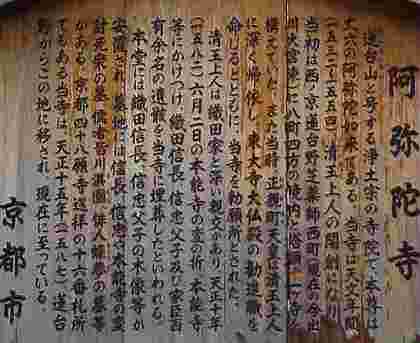 阿弥陀寺
蓮台山と号する浄土宗の寺院で、本尊は
丈六の阿弥陀如来である。当寺は天文年間
(一五三二~五五四)清玉上人の開創になり、
当初は西ノ京蓮台野芝薬師西町(現在の今出
川大宮東)に八町四方の境内と塔頭十一ヶ寺を
構えていた。また当時、正親町天皇は清玉上人
に深く帰依し、東大寺大仏殿の勧進職を
命じるとともに、当寺を勅願所とされた。
清玉上人は織田家と深い親交があり、天正十年
(一五八二)六月二日の本能寺の変の折、本能寺
等にかけつけ、織田信長、信忠父子及び家臣百
有余名の遺骸を当寺に埋葬したといわれる。
本堂には織田信長、信忠父子の木像等が
安置され、墓地には信長、信忠や本能寺の変
討死衆の墓、儒者皆川淇園、俳人蝶夢の墓等
がある。京都四十八願寺巡拝の十六番札所
でもある当寺は、天正十五年(一五八七)蓮台
野からこの地に移され、現在に至っている。
京都市